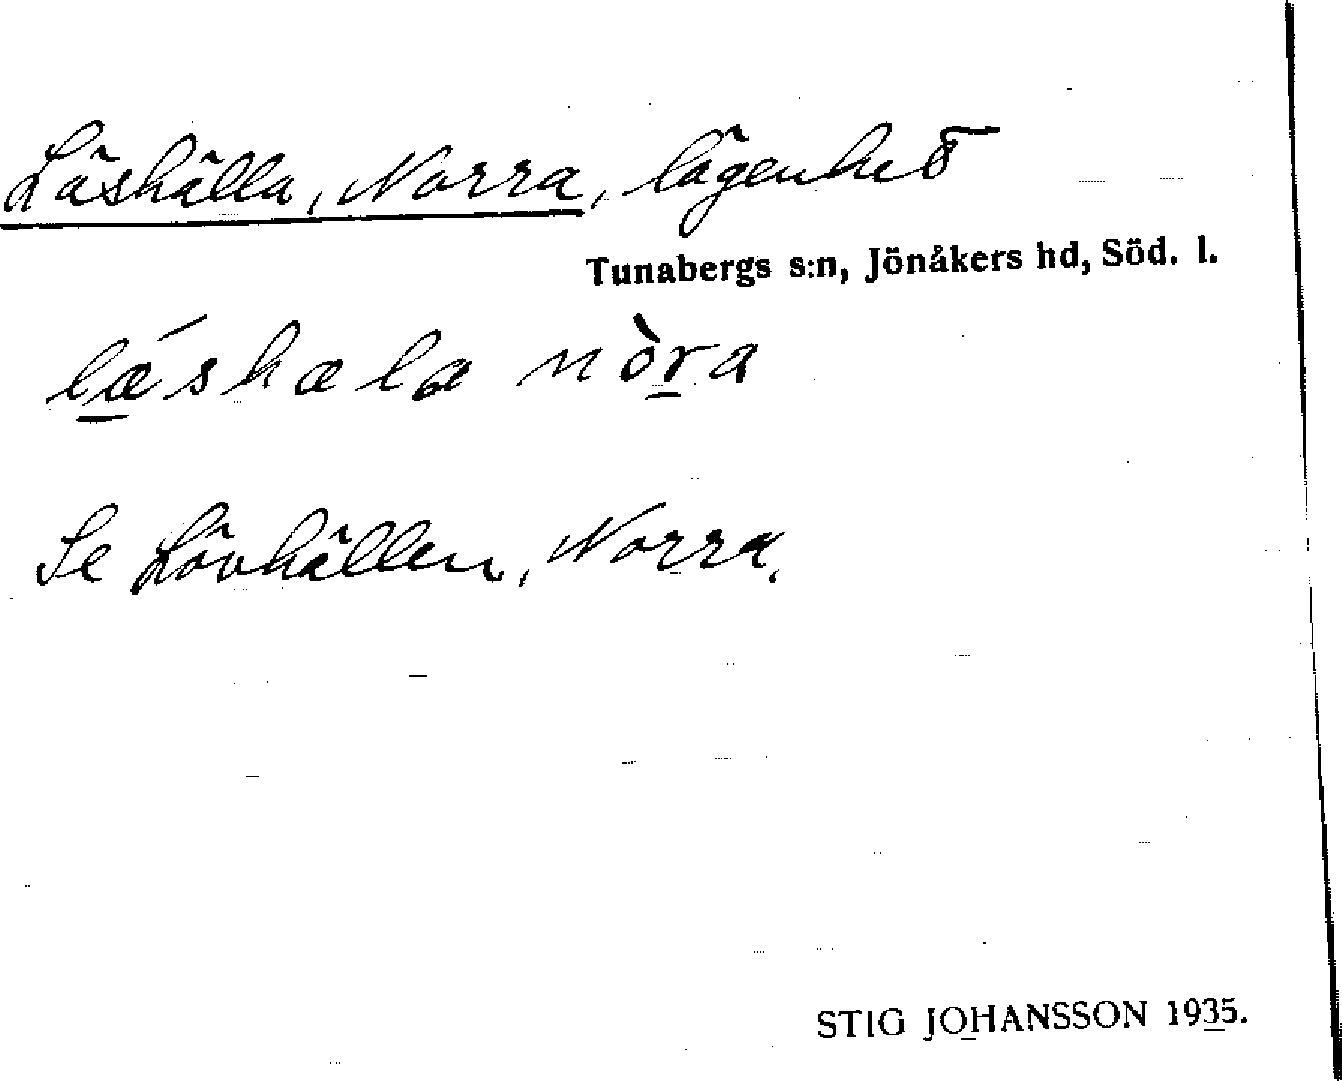 Läshälla, Norra, lägenhet
Tunabergs s:n, Jönåkers hd, Söd. l.
lǽshæla nòra
Se Lövhällen, Norra.
STIG JOHANSSON 1935.